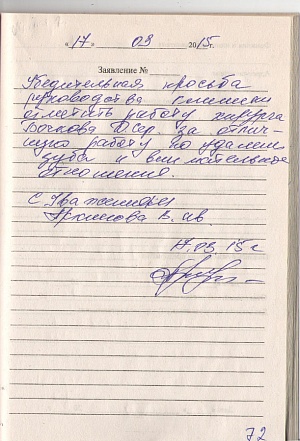 «17» 03 2015г.
Заявление №
Убедительная просьба
руководства клиники
отметить работу хирурга
за отлич-
ную работу по удалению
зуба и внимательное
отношение.
С Уважением
17.03.15 г
72